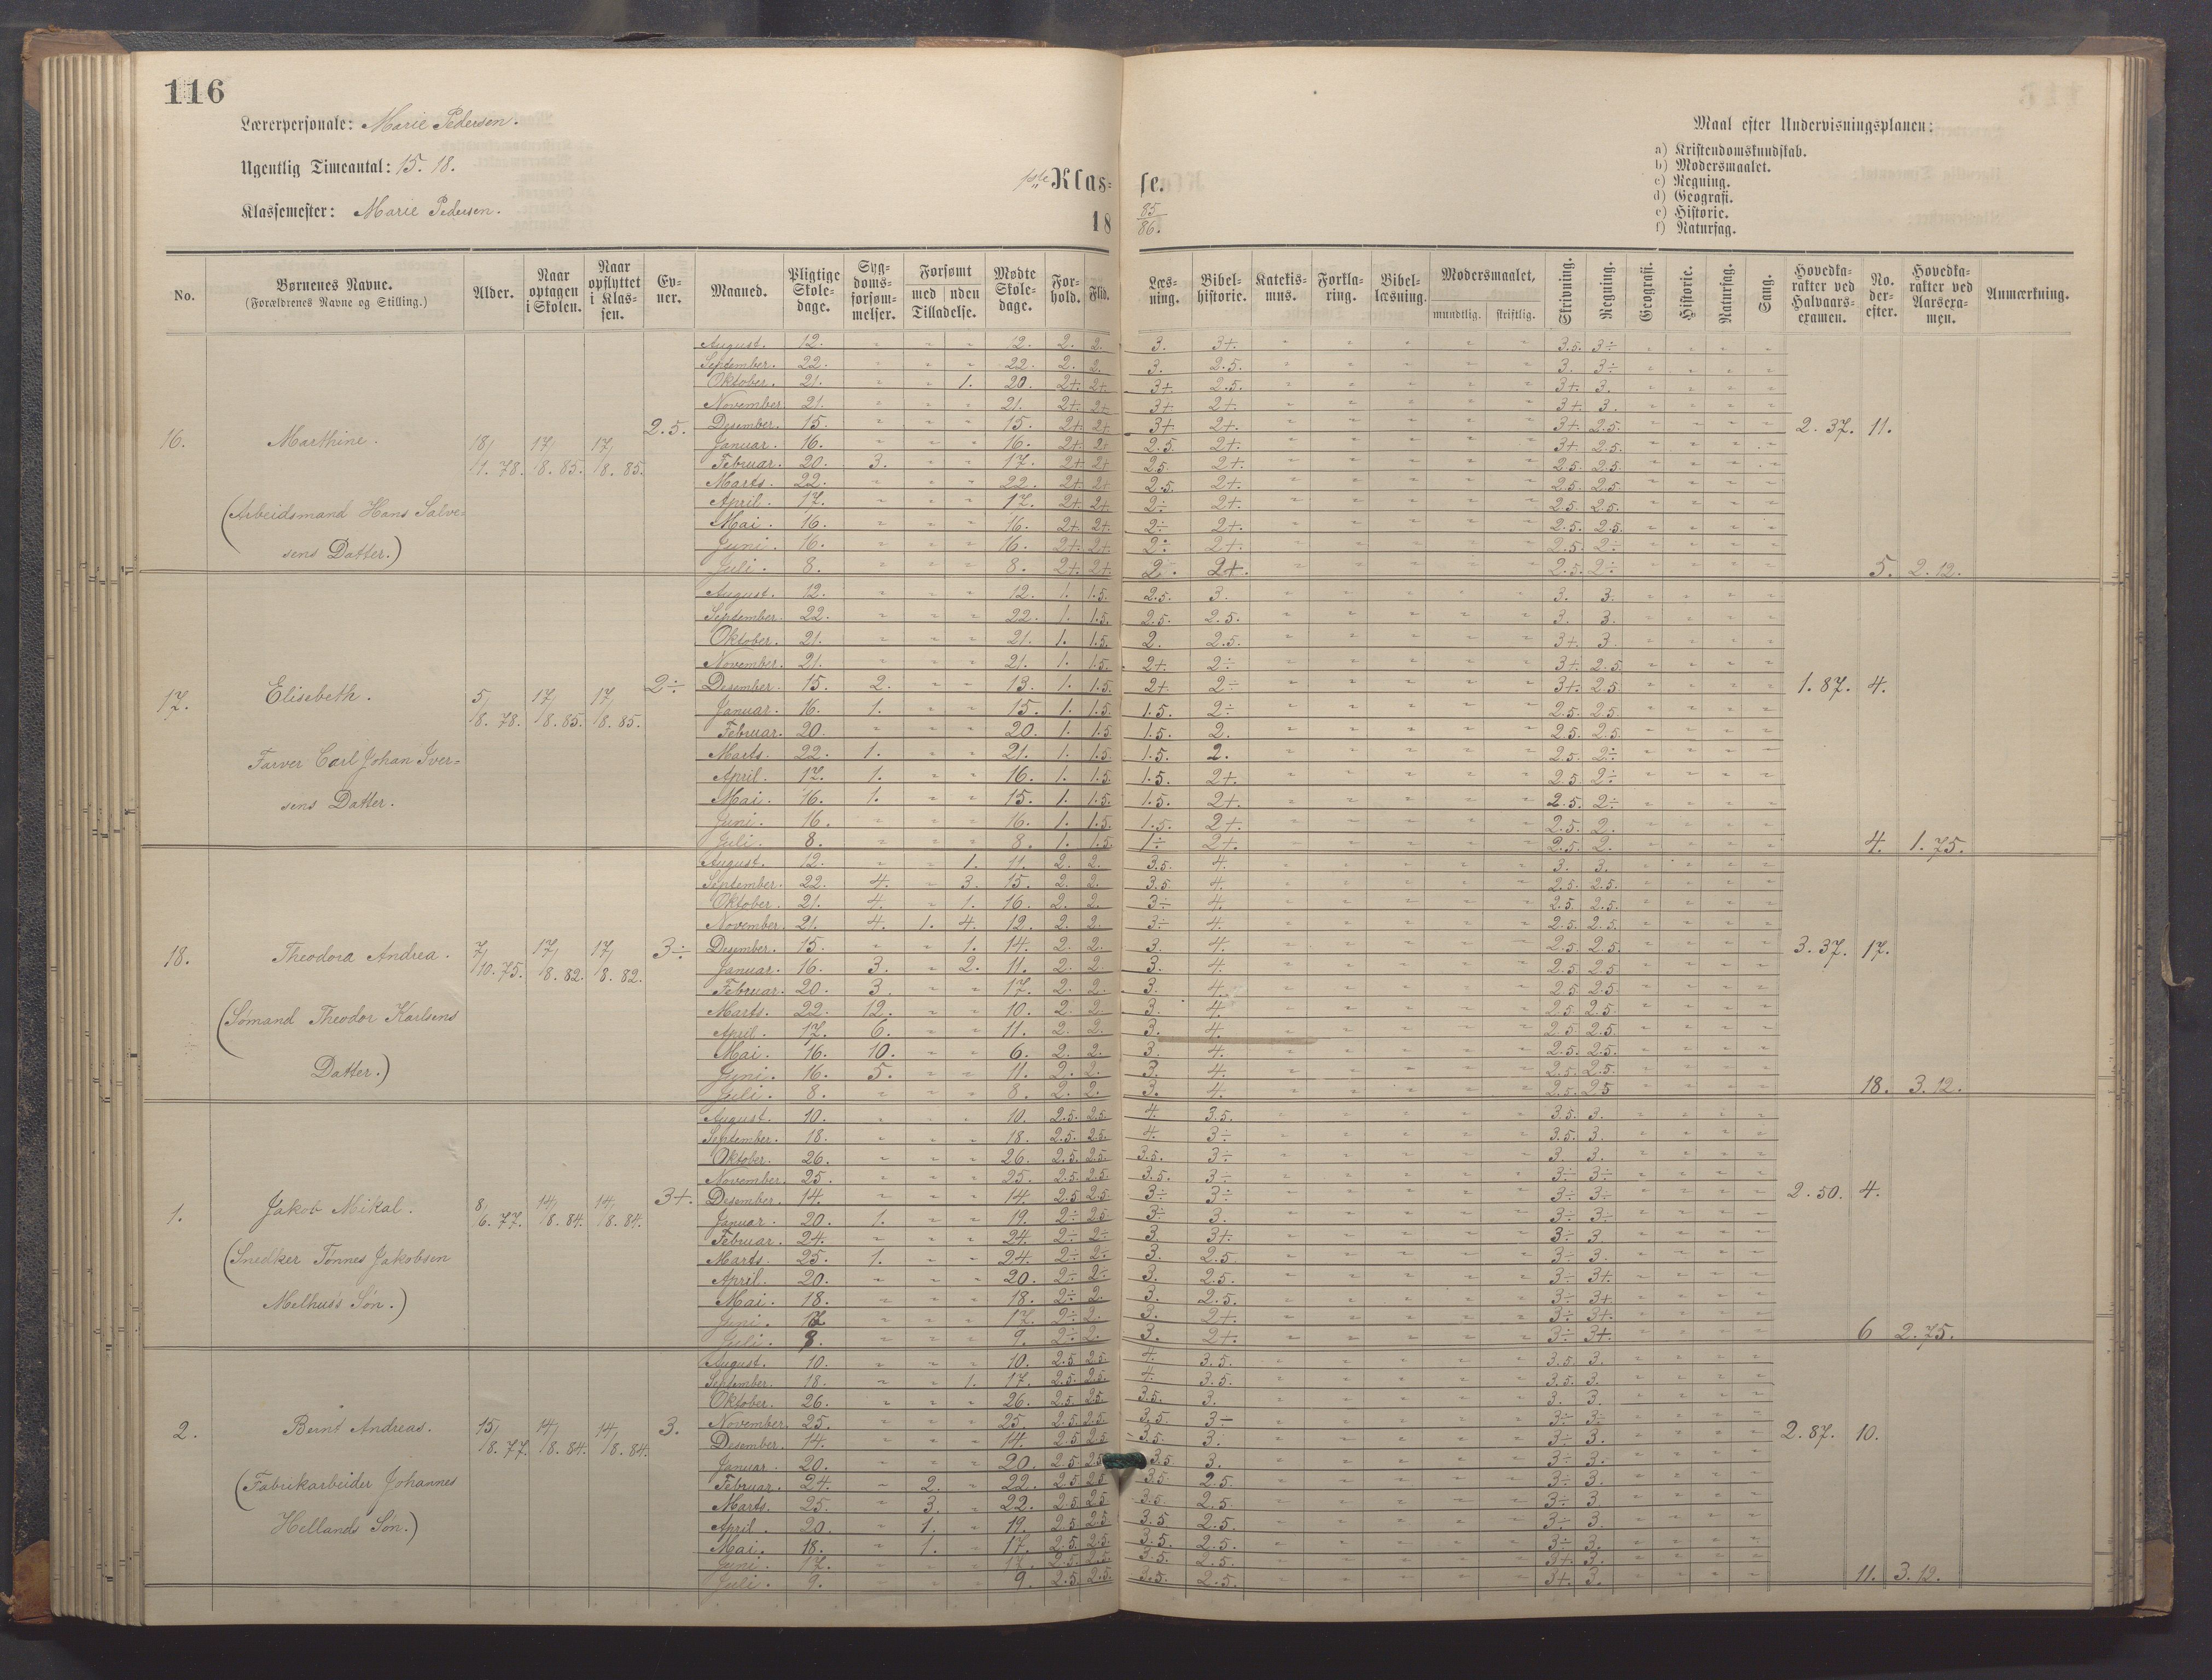 116
Lærerpersonale: Marie Pedersen.
Ugentlig Timeantal: 15. 18.
Klassemester: Marie Pedersen.
1ste Klasse.
18 85/86.
Maal efter Undervisningsplanen:
a) Kristendomskundskab.
b) Modersmaalet.
c) Regning.
d) Geografi.
e) Historie.
f) Naturfag.
No. | Børnenes Navne. (Forældrenes Navne og Stilling.) | Alder. | Naar optagen i Skolen. | Naar opflyttet i Klassen. | Evner. | Maaned. | Pligtige Skoledage. | Sygdomsforsømmelser. | Forsømt med / uden Tilladelse. | Mødte Skoledage. | Forhold. | Flid. | Læsning. | Bibelhistorie. | Katekismus. | Forklaring. | Bibellæsning. | Modersmaalet, mundtlig. skriftlig. | Skrivning. | Regning. | Geografi. | Historie. | Naturfag. | Sang. | Hovedkarakter ved Halvaarsexamen. | No. derefter. | Hovedkarakter ved Aarsexamen. | Anmærkning.
August. 12. " " " 12. 2. 2. 3. 3+. 3.5. 3÷
September. 22. " " " 22. 2. 2. 3. 2.5. 3. 3÷
Oktober. 21. " " 1. 20. 2+. 2+. 3+ 2.5. 3+. 3.
November. 21. " " " 21. 2+. 2+. 3+ 2+. 3+. 3.
16. Marthine. 18/11. 78. 17/8. 85. 17/8. 85. 2.5. Desember. 15. " " " 15. 2+. 2+ 3+. 2+. 3+. 2.5. 2.37. 11.
Januar. 16. " " " 16. 2+. 2+ 2.5. 2+. 3+ 2.5.
Februar. 20. 3. " " 17. 2+ 2+ 2.5. 2+. 2.5. 2.5.
Marts. 22. " " " 22. 2+ 2+ 2.5. 2+. 2.5. 2.5.
(Arbeidsmand Hans Salve- April. 17. " " " 17. 2+ 2+ 2÷ 2+. 2.5. 2.5.
Mai. 16. " " " 16. 2+ 2+. 2÷ 2+. 2.5. 2.5.
sens Datter.) Juni. 16. " " " 16. 2+ 2+. 2÷ 2+. 2.5. 2÷
Juli. 8. " " " 8. 2+. 2+. 2. 2+. 2.5. 2÷ 5. 2.12.
August. 12. " " " 12. 1. 1.5. 2.5. 3. 3. 3.
September. 22. " " " 22. 1. 1.5. 2.5. 2.5. 3. 3.
Oktober. 21. " " " 21. 1. 1.5. 2. 2.5. 3+ 3.
November. 21. " " " 21. 1. 1.5. 2+. 2÷ 3+. 2.5.
17. Elisebeth. 5/8. 78. 17/8. 85. 17/8. 85. 2÷ Desember. 15. 2. " " 13. 1. 1.5. 2+ 2÷ 3+. 2.5 1.87. 4.
Januar. 16. 1. " " 15. 1. 1.5. 1.5. 2÷ 2.5. 2.5.
Februar. 20. " " " 20. 1. 1.5 1.5. 2. 2.5. 2.5.
Farver Carl Johan Iver- Marts. 22. 1. " " 21. 1. 1.5 1.5. 2. 2.5. 2÷
April. 17. 1. " " 16. 1. 1.5. 1.5. 2+. 2.5. 2÷
sens Datter. Mai. 16. 1. " " 15. 1. 1.5. 1.5. 2+. 2.5. 2÷
Juni. 16. " " " 16. 1. 1.5. 1.5. 2+. 2.5. 2.
Juli. 8. " " " 8. 1. 1.5 1÷ 2+. 2.5. 2. 4. 1.75.
August. 12. " " 1. 11. 2. 2. 3.5. 4. 3. 3.
September. 22. 4. " 3. 15. 2. 2. 3.5. 4. 2.5. 2.5.
Oktober. 21. 4. " 1. 16. 2. 2. 3÷ 4. 2.5. 2.5.
November. 21. 4. 1. 4. 12. 2. 2. 3÷ 4. 2.5. 2.5.
18. Theodora Andrea. 7/10. 75. 17/8. 82. 17/8. 82. 3÷ Desember. 15. " " 1. 14. 2. 2. 3. 4. 2.5. 2.5. 3.37. 17.
Januar. 16. 3. " 2. 11. 2. 2. 3. 4. 2.5. 2.5
Februar. 20. 3. " " 17. 2. 2. 3. 4. 2.5 2.5
(Sømand Theodor Karlsens Marts. 22. 12. " " 10. 2. 2. 3. 4. 2.5 2.5.
April. 17. 6. " " 11. 2. 2. 3. 4. 2.5. 2.5.
Datter.) Mai. 16. 10. " " 6. 2. 2. 3. 4. 2.5. 2.5.
Juni. 16. 5. " " 11. 2. 2. 3. 4. 2.5. 2.5.
Juli. 8. " " " 8. 2. 2. 3. 4. 2.5. 2.5 18. 3.12.
August. 10. " " " 10. 2.5. 2.5. 4. 3.5. 3.5. 3.
September. 18. " " " 18. 2.5. 2.5. 4. 3÷ 3.5. 3.
Oktober. 26. " " " 26. 2.5. 2.5. 3.5. 3÷ 3. 3.
November. 25. " " " 25. 2.5. 2.5. 3.5. 3÷ 3÷ 3÷
1. Jakob Mikal. 8/6. 77. 14/8. 84. 14/8. 84. 3+. Desember. 14. " " " 14. 2.5 2.5. 3÷ 3÷ 3÷ 3÷ 2.50. 4.
Januar. 20. 1. " " 19. 2÷ 2.5 3÷ 3. 3÷ 3÷
Februar. 24. " " " 24. 2÷ 2÷ 3. 3+ 3÷ 3
(Snedker Tønnes Jakobsen Marts. 25. 1. " " 24. 2÷ 2÷ 3. 2.5 3÷ 3.
April. 20. " " " 20. 2÷ 2÷ 3. 2.5. 3÷ 3+.
Melhus's Søn.) Mai. 18. " " " 18. 2÷ 2. 3. 2.5. 3÷ 3+
Juni. 17 " " " 17. 2÷ 2. 3. 2+ 3÷ 3+.
Juli. 9. " " " 9. 2÷ 2. 3. 2+. 3÷ 3+. 6 2.75.
August. 10. " " " 10. 2.5. 2.5. 4. 3.5. 3.5. 3.
September. 18. " " 1. 17. 2.5. 2.5. 4. 3.5. 3.5. 3.
Oktober. 26. " " " 26. 2.5. 2.5. 3.5. 3. 3. 3.
2. Bernt Andreas. 15/8. 77. 14/8. 84. 14/8. 84. 3. November. 25. " " " 25. 2.5. 2.5 3.5. 3- 3÷ 3÷ 2.87. 10.
Desember. 14. " " " 14. 2.5 2.5 3.5. 3. 3÷ 3.
Januar. 20. " " " 20. 2.5 2.5 3.5 3. 3÷ 3.
(Fabrikarbeider Johannes Februar. 24. " 2. " 22. 2.5 2.5 3.5. 2.5. 3÷ 3.
Marts. 25. " 3. " 22. 2.5 2.5 3.5. 2.5. 3÷ 3
Hellands Søn.) April. 20. " 1. " 19. 2.5 2.5 3.5 2.5. 3÷ 3.
Mai. 18. " 1. " 17. 2.5. 2.5. 3.5. 2.5. 3÷ 3.
Juni. 17. " " " 17. 2.5. 2.5. 3.5. 2.5. 3+. 3.
Juli. 9. " " " 9. 2.5. 2.5. 3.5. 2.5. 3+. 3. 11. 3.12.